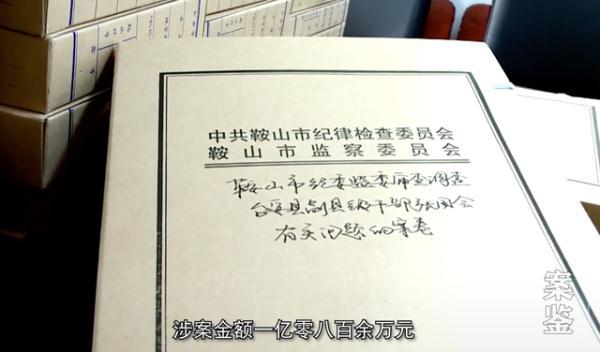 中共鞍山市纪律检查委员会
鞍山市监察委员会
鞍山市纪委监委审查调查
台安县副县级干部张国会
有关问题的案卷
案鉴
涉案金额一亿零八百余万元